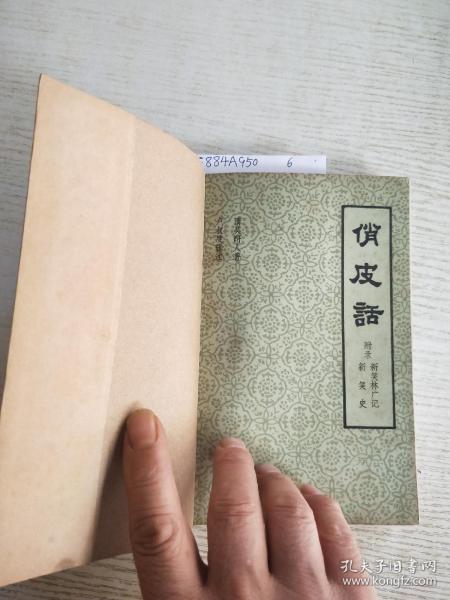 884A950 6
俏皮話
附录 新笑林广记
新笑史
孔夫子旧书网
www.kongfz.com